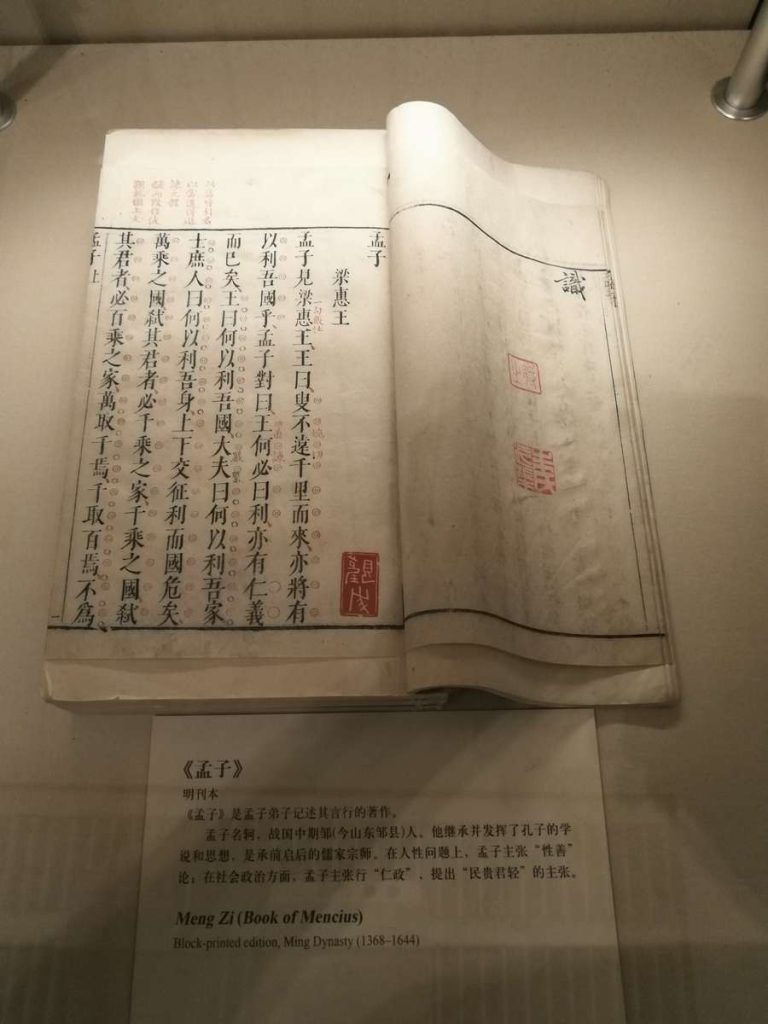 識
孟子
梁惠王
孟子見梁惠王王曰叟不遠千里而來亦將有
以利吾國乎孟子對曰王何必曰利亦有仁義
而已矣王曰何以利吾國大夫曰何以利吾家
士庶人曰何以利吾身上下交征利而國危矣
萬乘之國弒其君者必千乘之家千乘之國弒
其君者必百乘之家萬取千焉千取百焉不爲
孟子上
《孟子》
明刊本
《孟子》是孟子弟子记述其言行的著作。
孟子名轲，战国中期邹(今山东邹县)人。他继承并发挥了孔子的学
说和思想，是承前启后的儒家宗师。在人性问题上，孟子主张“性善”
论；在社会政治方面，孟子主张行“仁政”，提出“民贵君轻”的主张。
Meng Zi (Book of Mencius)
Block-printed edition, Ming Dynasty (1368–1644)